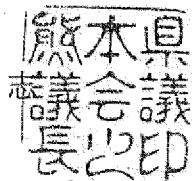 県議印
本会之
熊議長
志